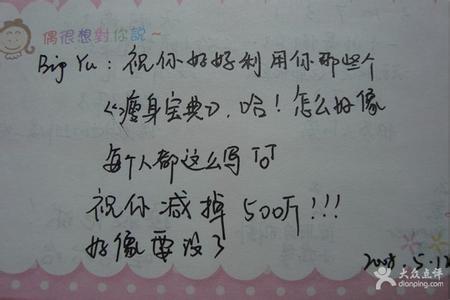 偶很想對你說~
Big Yu：祝你好好利用你那些个
《瘦身宝典》，哈！怎么好像
每个人都这么写 TOT
祝你减掉 500斤!!!
好像要没了
2008.5.12
大众点评
dianping.com